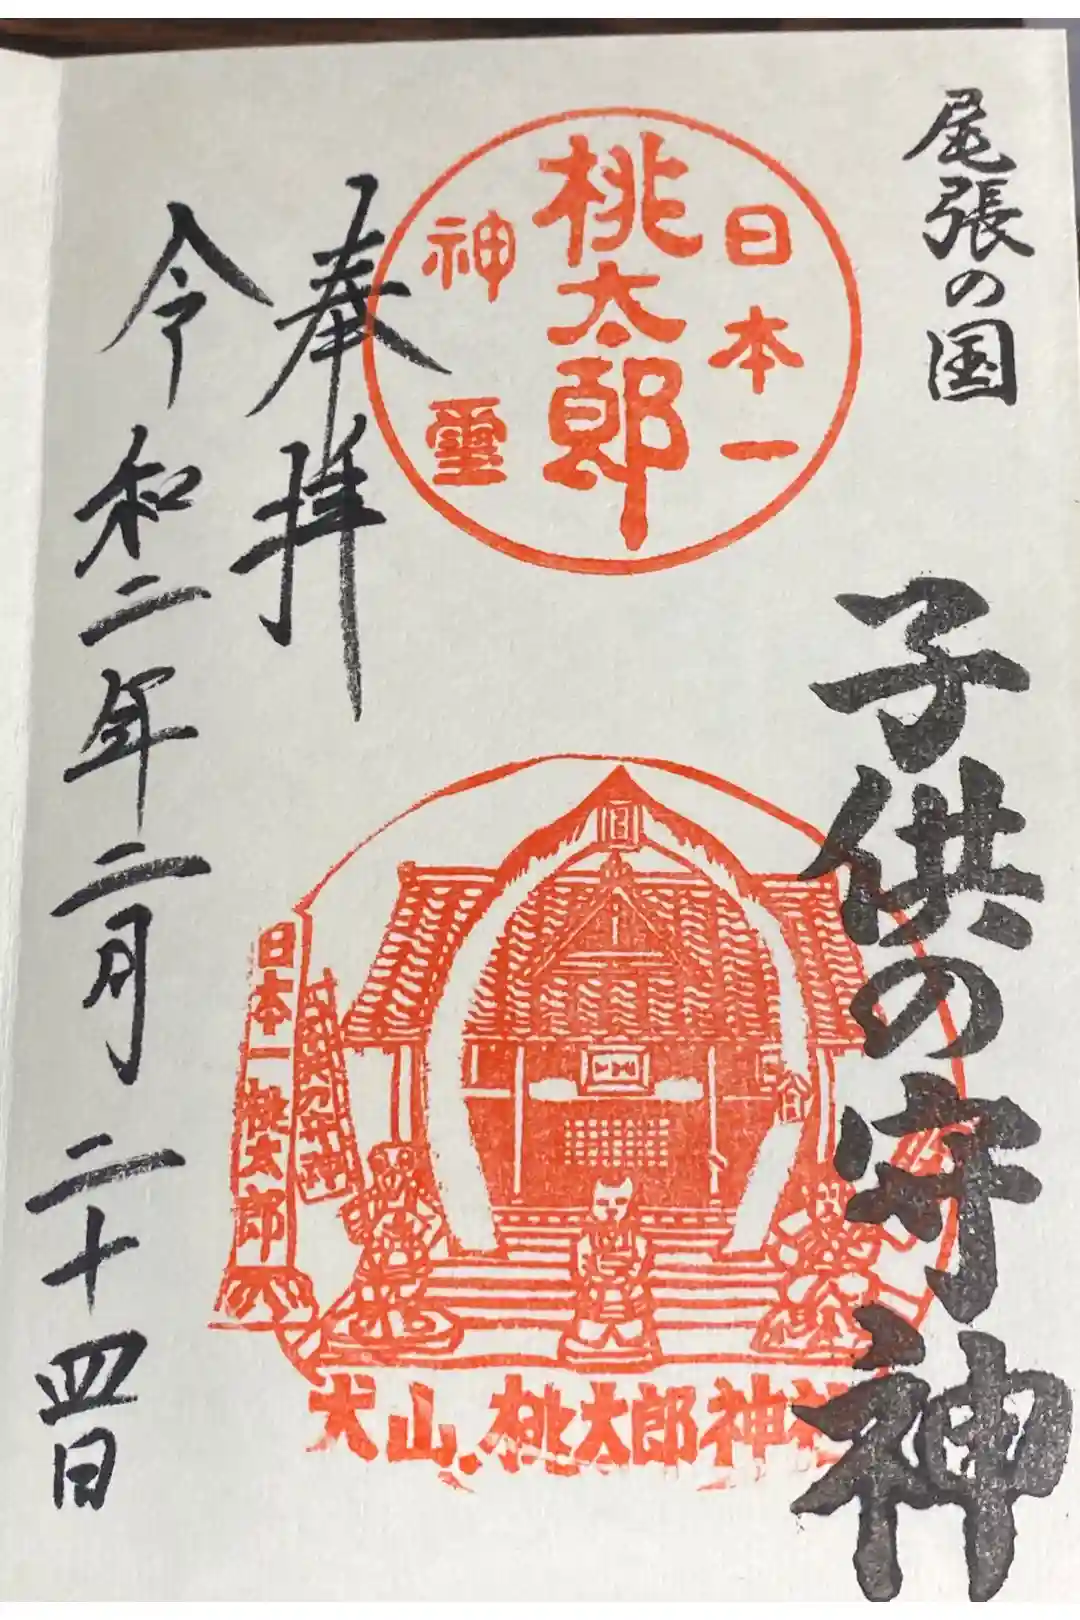 尾張の国
子供の守神
日本一
桃太郎
神霊
日本一桃太郎
犬山、桃太郎神社
奉拝
令和二年二月二十四日